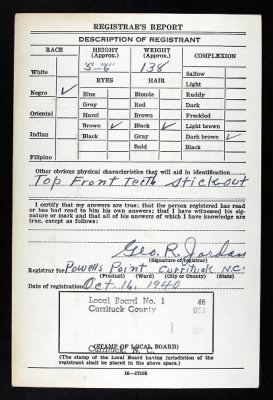 REGISTRAR'S REPORT
DESCRIPTION OF REGISTRANT
RACE HEIGHT (Approx.) WEIGHT (Approx.) COMPLEXION
5-"6" 138
White Sallow
EYES HAIR Light
Negro ✓ Blue Blonde Ruddy
Gray Red Dark
Oriental Hazel Brown Freckled
Brown ✓ Black ✓ Light brown
Indian Black Gray Dark brown ✓
Bald Black
Filipino
Other obvious physical characteristics that will aid in identification
Top Front Teeth Stick out
I certify that my answers are true; that the person registered has read
or has had read to him his own answers; that I have witnessed his sig-
nature or mark and that all of his answers of which I have knowledge are
true, except as follows:
Geo. R. Jordan
(Signature of registrar)
Registrar for Powells Point Currituck N.C.
(Precinct) (Ward) (City or County) (State)
Date of registration Oct 16, 1940
Local Board No. 1 46
Currituck County 053
(STAMP OF LOCAL BOARD)
Currituck, N. C.
(The stamp of the Local Board having jurisdiction of the
registrant shall be placed in the above space.)
16-17105